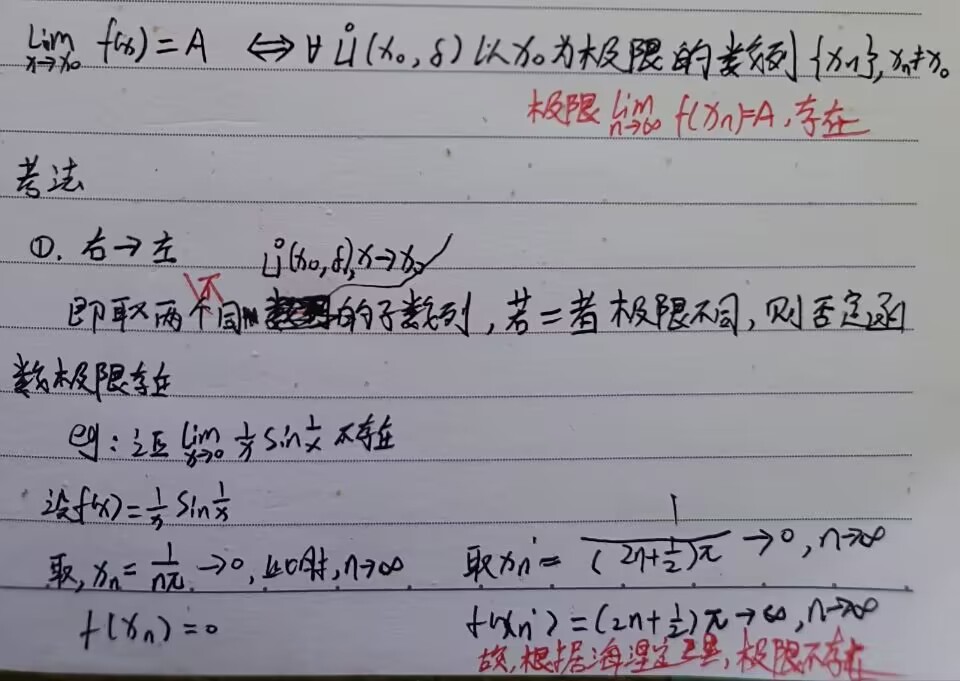 lim x→x₀ f(x) = A ⇔ ∀ Ů(x₀, δ) 以x₀为极限的数列{xn}, xn≠x₀
极限 lim n→∞ f(xn)=A, 存在
考法
①. 右→左
Ů(x₀, δ), x→x₀
即取两个不同的子数列, 若二者极限不同, 则否定函
数极限存在
eg: 证 lim x→0 1/x sin 1/x 不存在
设f(x) = 1/x sin 1/x
取, xn = 1/nπ →0, 此时, n→∞ 取xn' = 1/(2n+1/2)π →0, n→∞
f(xn) = 0 f(xn') = (2n+1/2)π →∞, n→∞
故, 根据海涅定理, 极限不存在